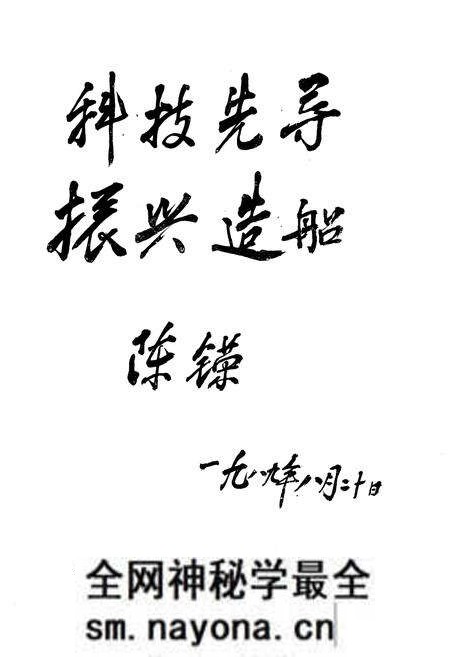 科技先导
振兴造船
陈镁
一九八九年八月二十日
全网神秘学最全
sm.nayona.cn